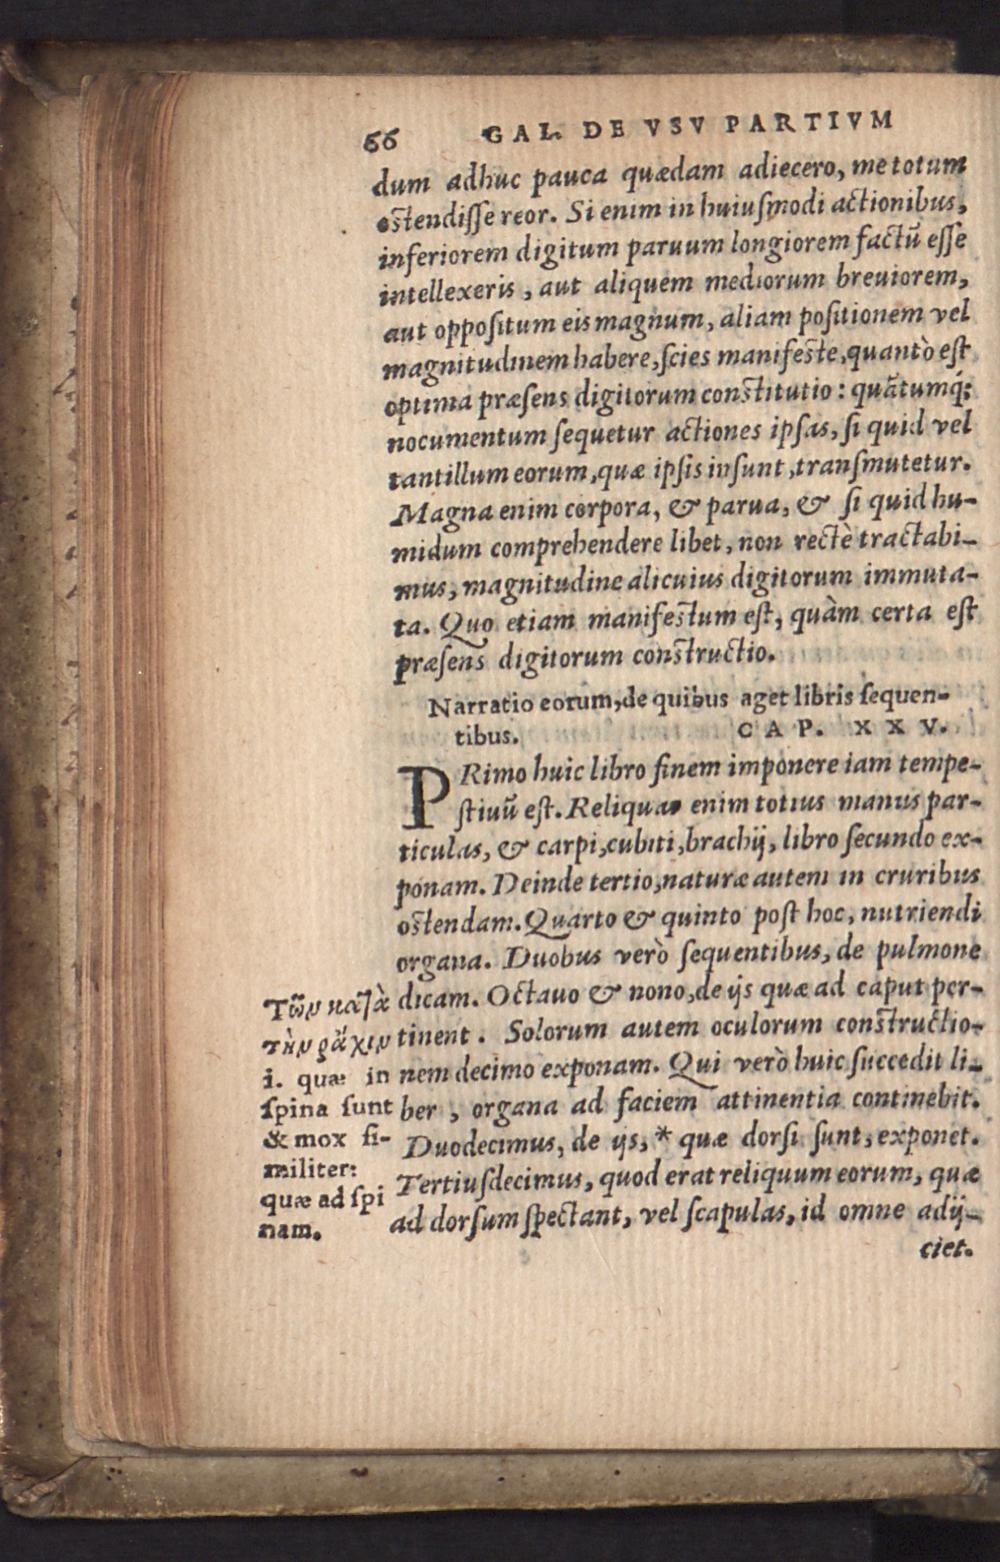 66 GAL. DE VSV PARTIVM
dum adhuc pauca quædam adiecero, me totum
ostendisse reor. Si enim in huiusmodi actionibus,
inferiorem digitum paruum longiorem factū esse
intellexeris, aut aliquem mediorum breuiorem,
aut oppositum eis magnum, aliam positionem vel
magnitudinem habere, scies manifeste, quantò est
optima præsens digitorum constitutio: quātumq́;
nocumentum sequetur actiones ipsas, si quid vel
tantillum eorum, quæ ipsis insunt, transmutetur.
Magna enim corpora, & parua, & si quid hu-
midum comprehendere libet, non rectè tractabi-
mus, magnitudine alicuius digitorum immuta-
ta. Quo etiam manifestum est, quàm certa est
præsens digitorum constructio.
Narratio eorum, de quibus aget libris sequen-
tibus. CAP. XXV.
PRimo huic libro finem imponere iam tempe-
stiuū est. Reliquas enim totius manus par-
ticulas, & carpi, cubiti, brachij, libro secundo ex-
ponam. Deinde tertio, naturæ autem in cruribus
ostendam. Quarto & quinto post hoc, nutriendi
organa. Duobus verò sequentibus, de pulmone
dicam. Octauo & nono, de ijs quæ ad caput per-
tinent. Solorum autem oculorum constructio-
nem decimo exponam. Qui verò huic succedit li-
ber, organa ad faciem attinentia continebit.
Duodecimus, de ijs, * quæ dorsi sunt, exponet.
Tertiusdecimus, quod erat reliquum eorum, quæ
ad dorsum spectant, vel scapulas, id omne adij-
ciet.
Τῶν κατὰ
τὴν ῥάχιν
i. quæ in
spina sunt
& mox si-
militer:
quæ ad spi
nam.